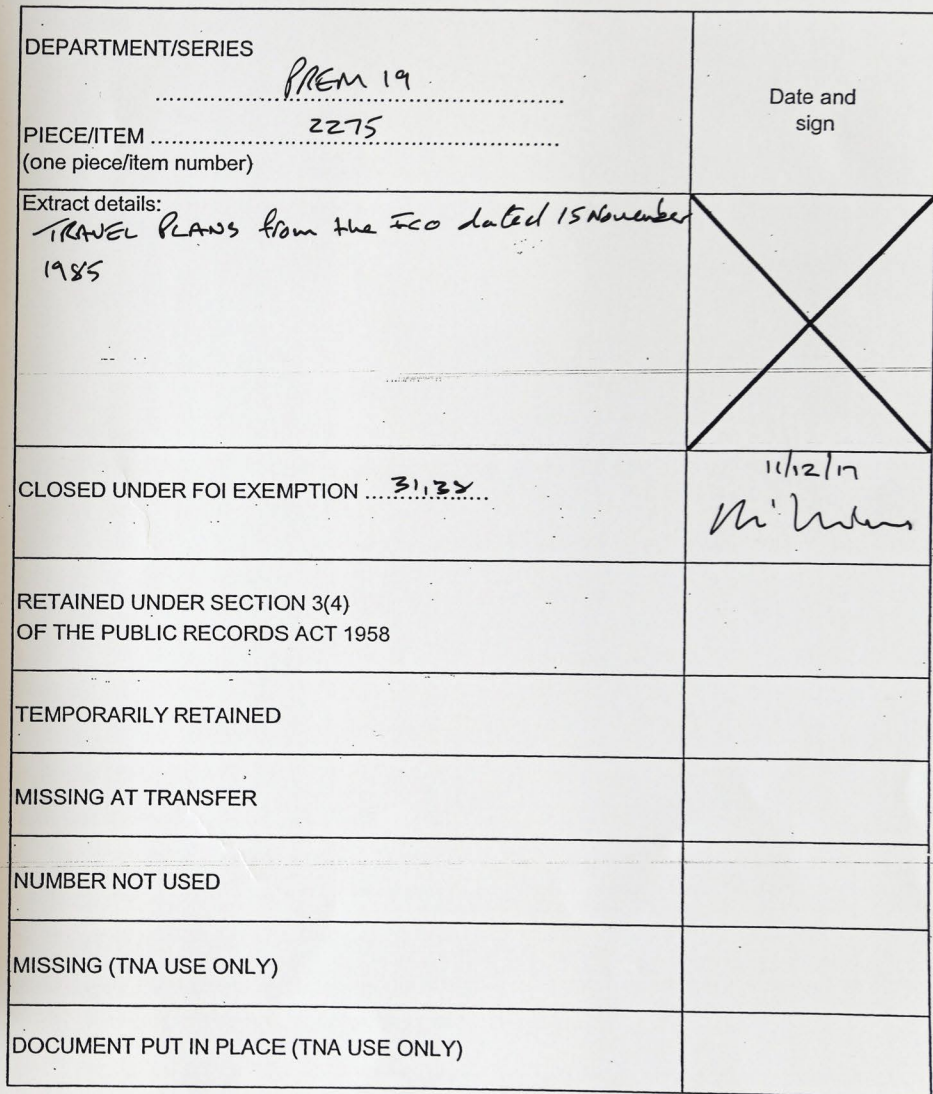 DEPARTMENT/SERIES
PREM 19
Date and
sign
PIECE/ITEM 2275
(one piece/item number)
Extract details:
TRAVEL PLANS from the FCO dated 15 November
1985
CLOSED UNDER FOI EXEMPTION 31,38
11/12/17
RETAINED UNDER SECTION 3(4)
OF THE PUBLIC RECORDS ACT 1958
TEMPORARILY RETAINED
MISSING AT TRANSFER
NUMBER NOT USED
MISSING (TNA USE ONLY)
DOCUMENT PUT IN PLACE (TNA USE ONLY)